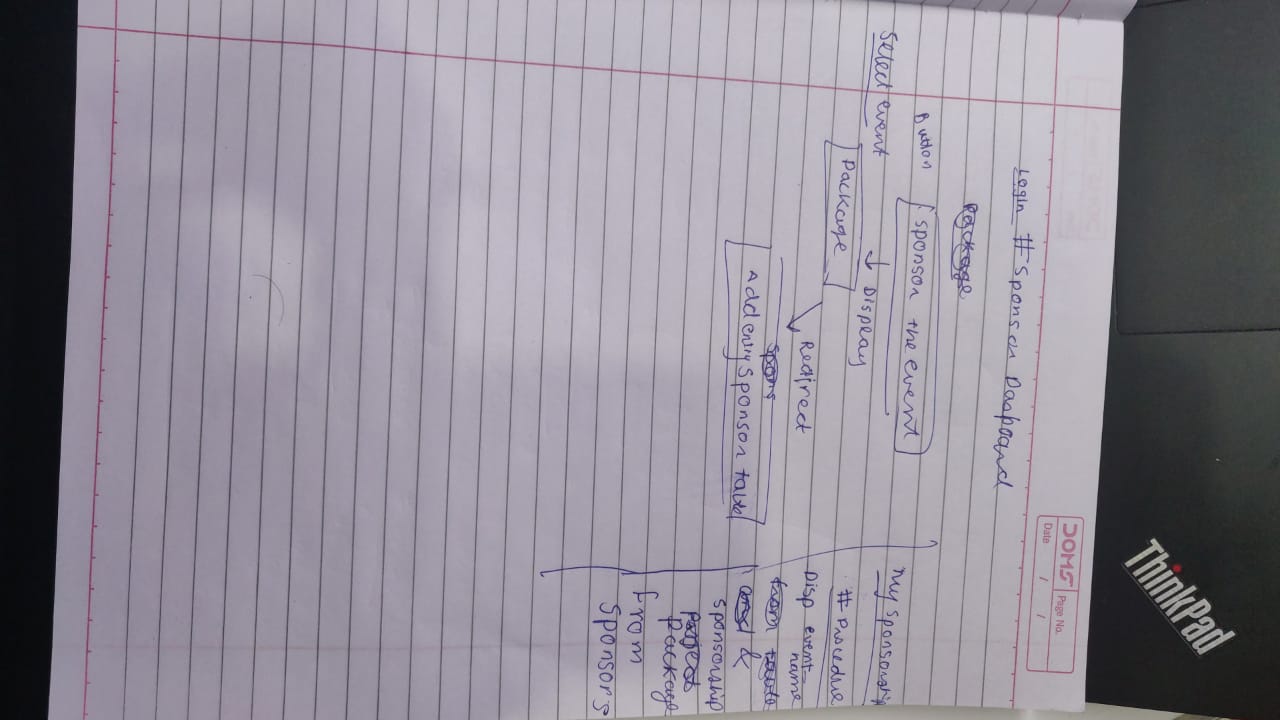 ThinkPad
DOMS
Page No.
Date / /
Login # Sponson Daspoard
Package
Button
Sponson the event
Select event
Display
Package
Redirect
Spons
Add entry Sponson table
My Sponsorship
# Procedue
Disp event
name
from table
and &
Sponsorship
Package
From
Sponsors